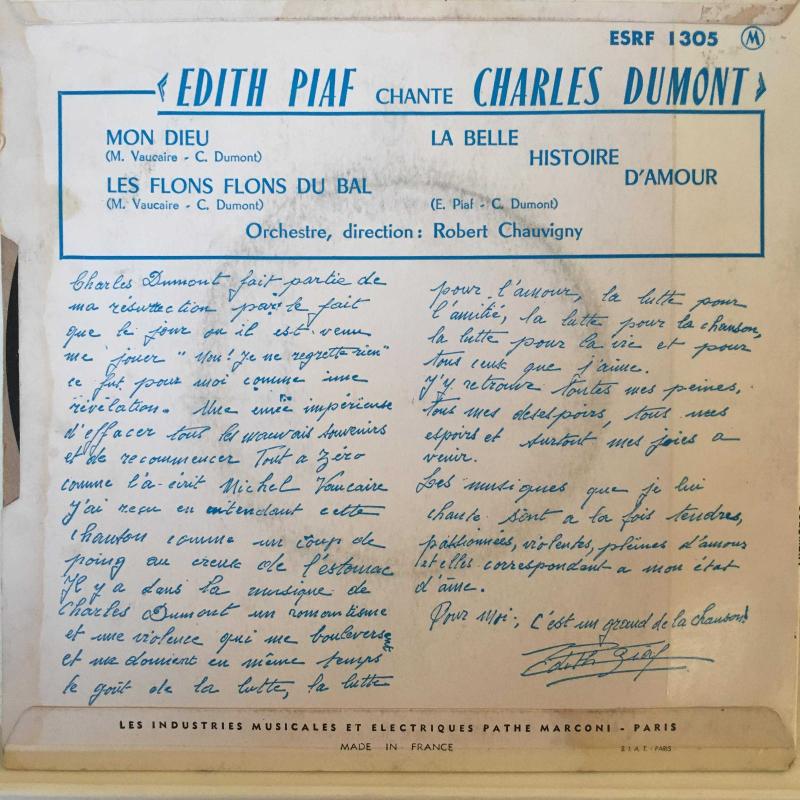 ESRF 1305 M
« EDITH PIAF CHANTE CHARLES DUMONT »
MON DIEU
(M. Vaucaire - C. Dumont)
LES FLONS FLONS DU BAL
(M. Vaucaire - C. Dumont)
LA BELLE
HISTOIRE
D'AMOUR
(E. Piaf - C. Dumont)
Orchestre, direction : Robert Chauvigny
Charles Dumont fait partie de
ma résurrection par le fait
que le jour ou il est venu
me jouer "Non ! Je ne regrette rien"
ce fut pour moi comme une
révélation. Une envie impérieuse
d'effacer tous les mauvais souvenirs
et de recommencer Tout a Zéro
comme l'a écrit Michel Vaucaire
J'ai reçu en entendant cette
chanson comme un coup de
poing au creux de l'estomac
Il y a dans la musique de
Charles Dumont un romantisme
et une violence qui me bouleversent
et me donnent en même temps
le goût de la lutte, la lutte
pour l'amour, la lutte pour
l'amitié, la lutte pour la chanson,
la lutte pour la vie et pour
tous ceux que j'aime.
J'y retrouve toutes mes peines,
tous mes desespoirs, tous mes
espoirs et surtout mes joies a
venir.
Les musiques que je lui
chante sont a la fois tendres,
passionnées, violentes, pleines d'amour
et elles correspondant a mon état
d'âme.
Pour moi, c'est un grand de la chanson
Edith Piaf
LES INDUSTRIES MUSICALES ET ELECTRIQUES PATHE MARCONI - PARIS
MADE IN FRANCE
S.I.A.T. - PARIS